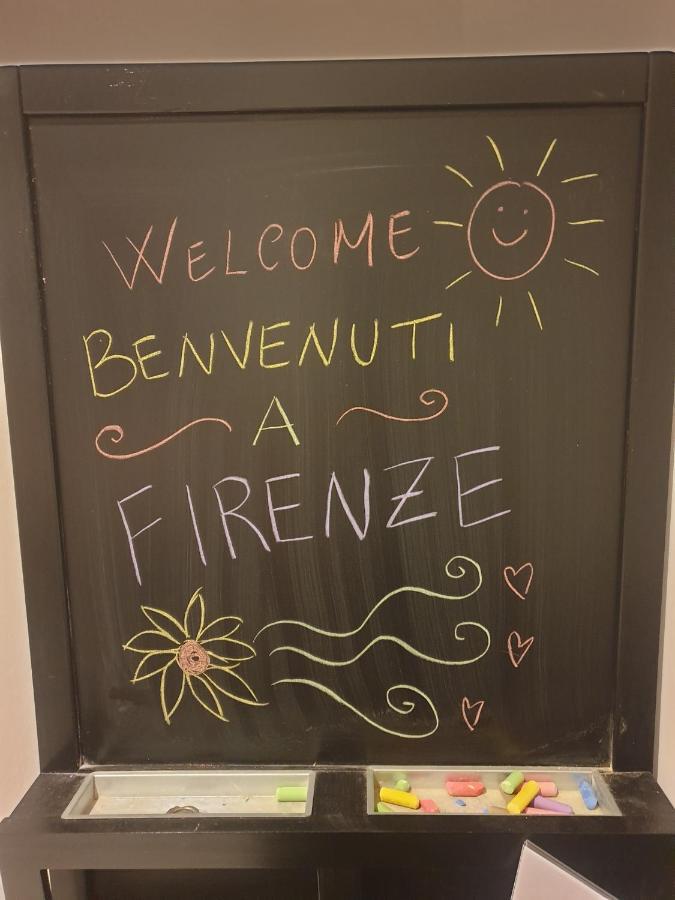 WELCOME
BENVENUTI
A
FIRENZE